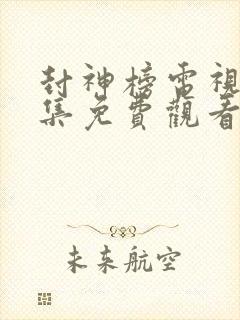 封神榜雷視
集免費觀看
未來航空